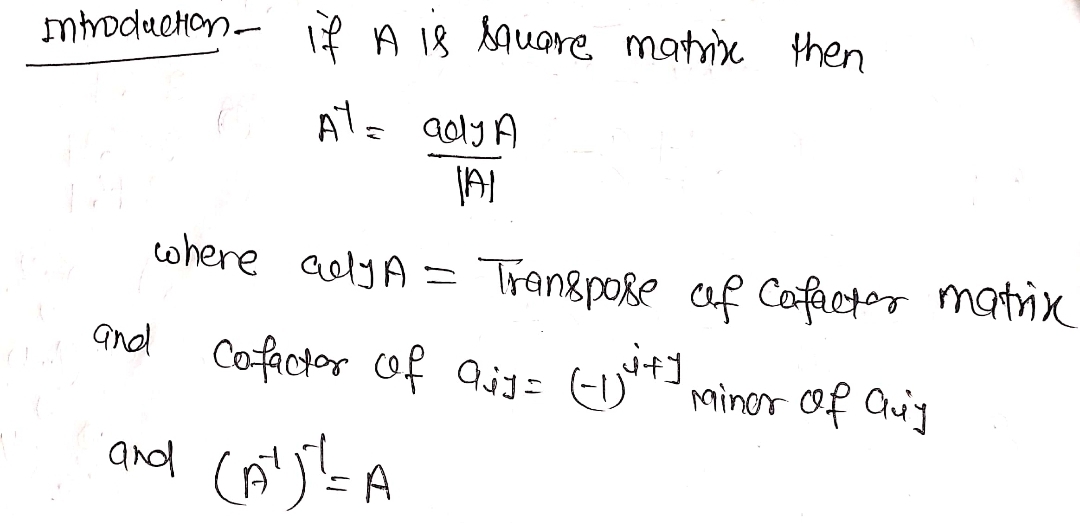 Introduction - if A is square matrix then
A⁻¹ = adj A
|A|
where adj A = Transpose of Cofactor matrix
and Cofactor of aij = (-1)^i+j Minor of aij
and (A⁻¹)⁻¹ = A